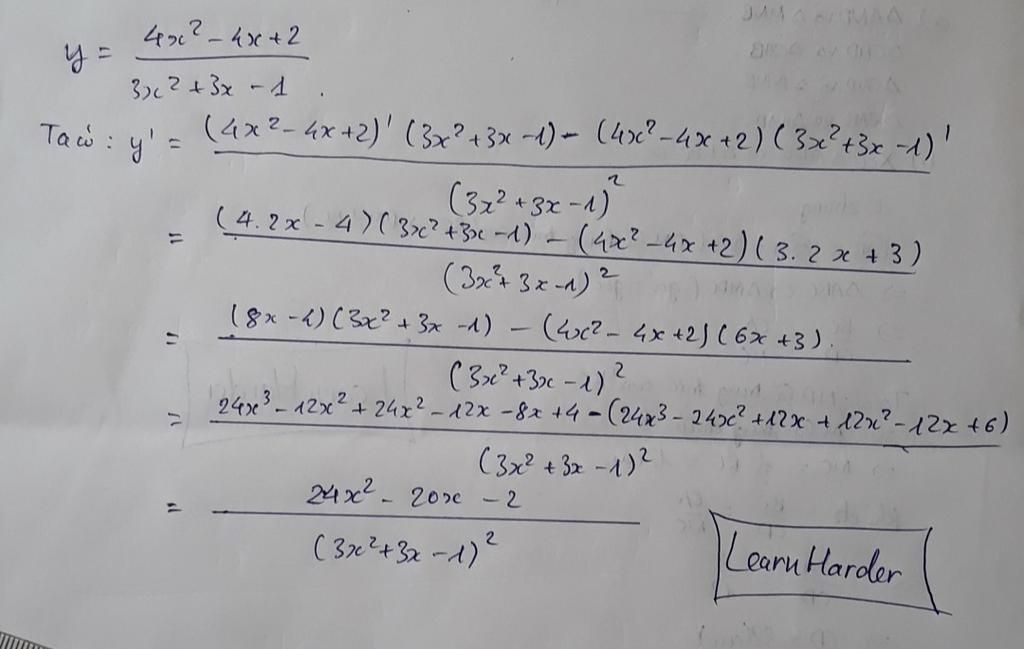 y = (4x² - 4x + 2) / (3x² + 3x - 1).
Ta có : y' = ((4x² - 4x + 2)' (3x² + 3x - 1) - (4x² - 4x + 2) (3x² + 3x - 1)') / (3x² + 3x - 1)²
= ((4.2x - 4) (3x² + 3x - 1) - (4x² - 4x + 2) (3.2x + 3)) / (3x² + 3x - 1)²
= ((8x - 4) (3x² + 3x - 1) - (4x² - 4x + 2) (6x + 3)) / (3x² + 3x - 1)²
= (24x³ - 12x² + 24x² - 12x - 8x + 4 - (24x³ - 24x² + 12x + 12x² - 12x + 6)) / (3x² + 3x - 1)²
= (24x² - 20x - 2) / (3x² + 3x - 1)²
LearnHarder